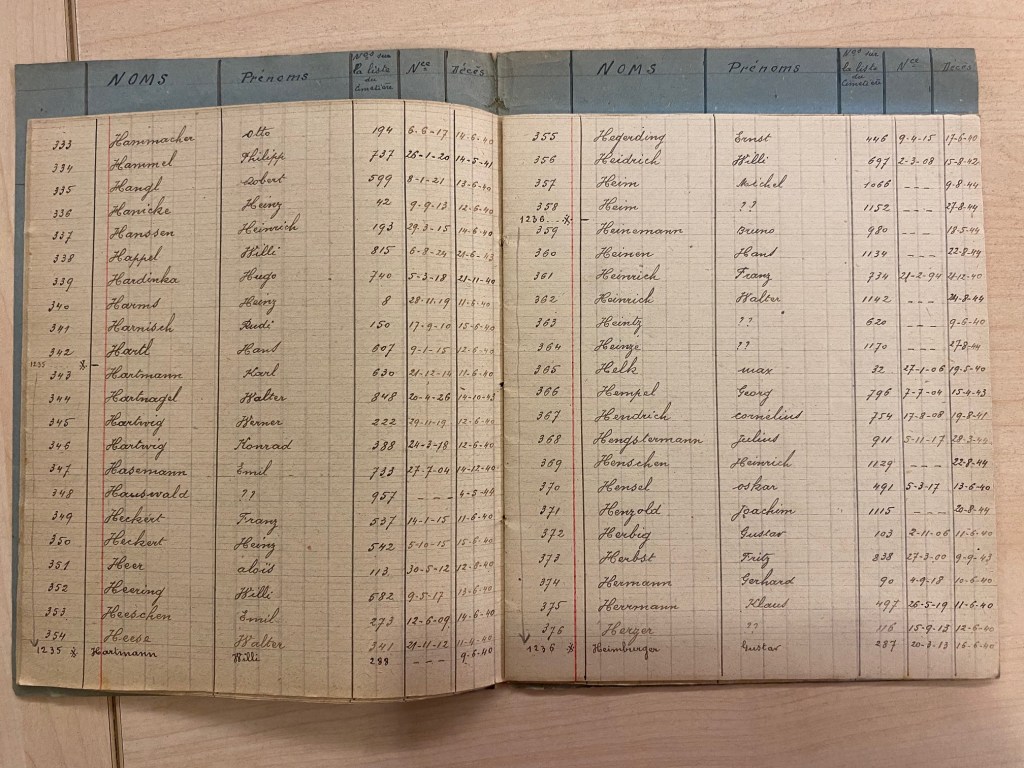 NOMS Prénoms Nos sur la liste du cimetière Nce Décès
333 Hammacher Otto 194 6-6-17 14-6-40
334 Hammel Philipp 737 26-1-20 14-5-41
335 Hangl Robert 599 8-1-21 13-6-40
336 Hanicke Heinz 42 9-9-13 12-6-40
337 Hanssen Heinrich 193 29-3-15 14-6-40
338 Happel Willi 815 6-8-24 21-6-43
339 Hardinka Hugo 740 5-3-18 21-11-40
340 Harms Heinz 8 28-11-19 11-6-40
341 Harnisch Rudi 150 17-9-10 15-6-40
342 Hartl Hans 607 9-1-15 12-6-40
1235 X
343 Hartmann Karl 630 21-12-14 11-6-40
344 Hartnagel Walter 848 20-4-26 14-10-43
345 Hartwig Werner 222 29-11-19 12-6-40
346 Hartwig Konrad 388 24-3-18 12-6-40
347 Hasemann Emil 733 27-7-04 14-12-40
348 Hauswald ?? 957 - - - 4-5-44
349 Heckert Franz 537 14-1-15 11-6-40
350 Heckert Heinz 542 5-10-15 15-6-40
351 Heer aloïs 113 30-5-12 12-6-40
352 Heering Willi 582 9-5-17 13-6-40
353 Heeschen Emil 273 12-6-09 14-6-40
354 Heese Walter 341 21-11-12 11-4-40
1235 X Hartmann Willi 288 - - - 9-6-40
NOMS Prénoms Nos sur la liste du cimetière Nce Décès
355 Hegerding Ernst 446 9-4-15 17-6-40
356 Heidrich Willi 697 2-3-08 15-8-42
357 Heim Michel 1066 - - - 9-8-44
358 Heim ?? 1152 - - - 27-8-44
1236 X
359 Heinemann Bruno 980 - - - 18-5-44
360 Heinen Hans 1134 - - - 22-8-44
361 Heinrich Franz 734 21-2-94 21-12-40
362 Heinrich Walter 1142 - - - 24-8-44
363 Heintz ?? 620 - - - 9-6-40
364 Heinze ?? 1170 - - - 27-8-44
365 Helk max 32 27-1-06 19-5-40
366 Hempel Georg 796 7-7-04 15-4-43
367 Hendrich cornélius 754 17-8-08 19-8-41
368 Hengstermann Julius 911 5-11-17
369 Henschen Heinrich 1129 - - - 22-8-44
370 Hensel oskar 491 5-3-17 13-6-40
371 Henzold Joachim 1115 - - - 20-8-44
372 Herbig Gustav 103 2-11-06 11-6-40
373 Herbst Fritz 838 27-3-00 9-9-43
374 Hermann Gerhard 90 4-9-18 10-6-40
375 Herrmann Klaus 497 26-5-19 11-6-40
376 Herzer ?? 116 15-9-13 12-6-40
1236 X Heimburger Gustav 287 20-3-13 16-6-40